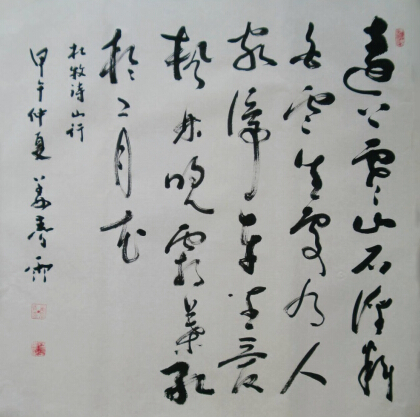 遠上寒山石徑斜
白雲生處有人
家停車坐愛
楓林晚霜葉紅
於二月花
杜牧诗山行
甲午仲夏